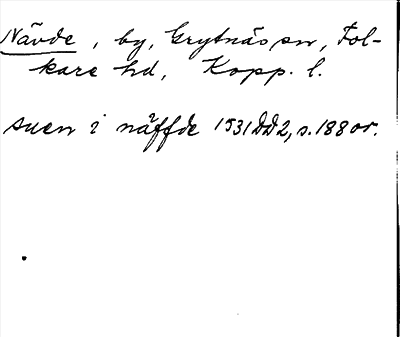 Nävde, by, Grytnäs sn, Fol-
kare hd, Kopp. l.
suen i näffde 1531 DD2, s. 188 or.